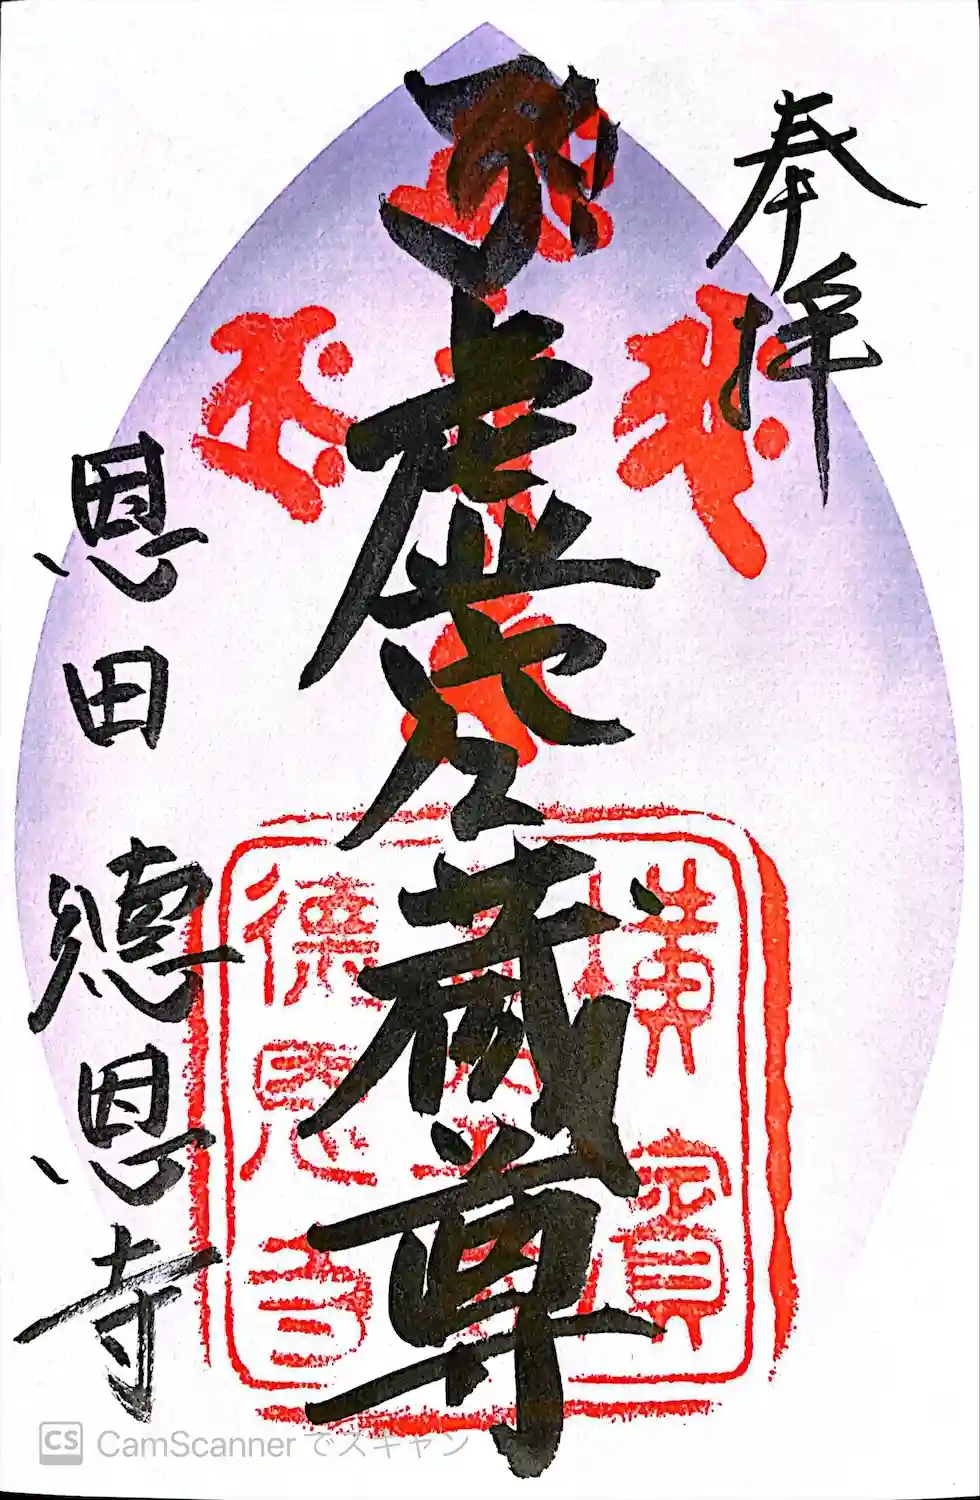 奉拝
虚空蔵尊
恩田
徳恩寺
横濱
徳恩寺
CamScannerでスキャン